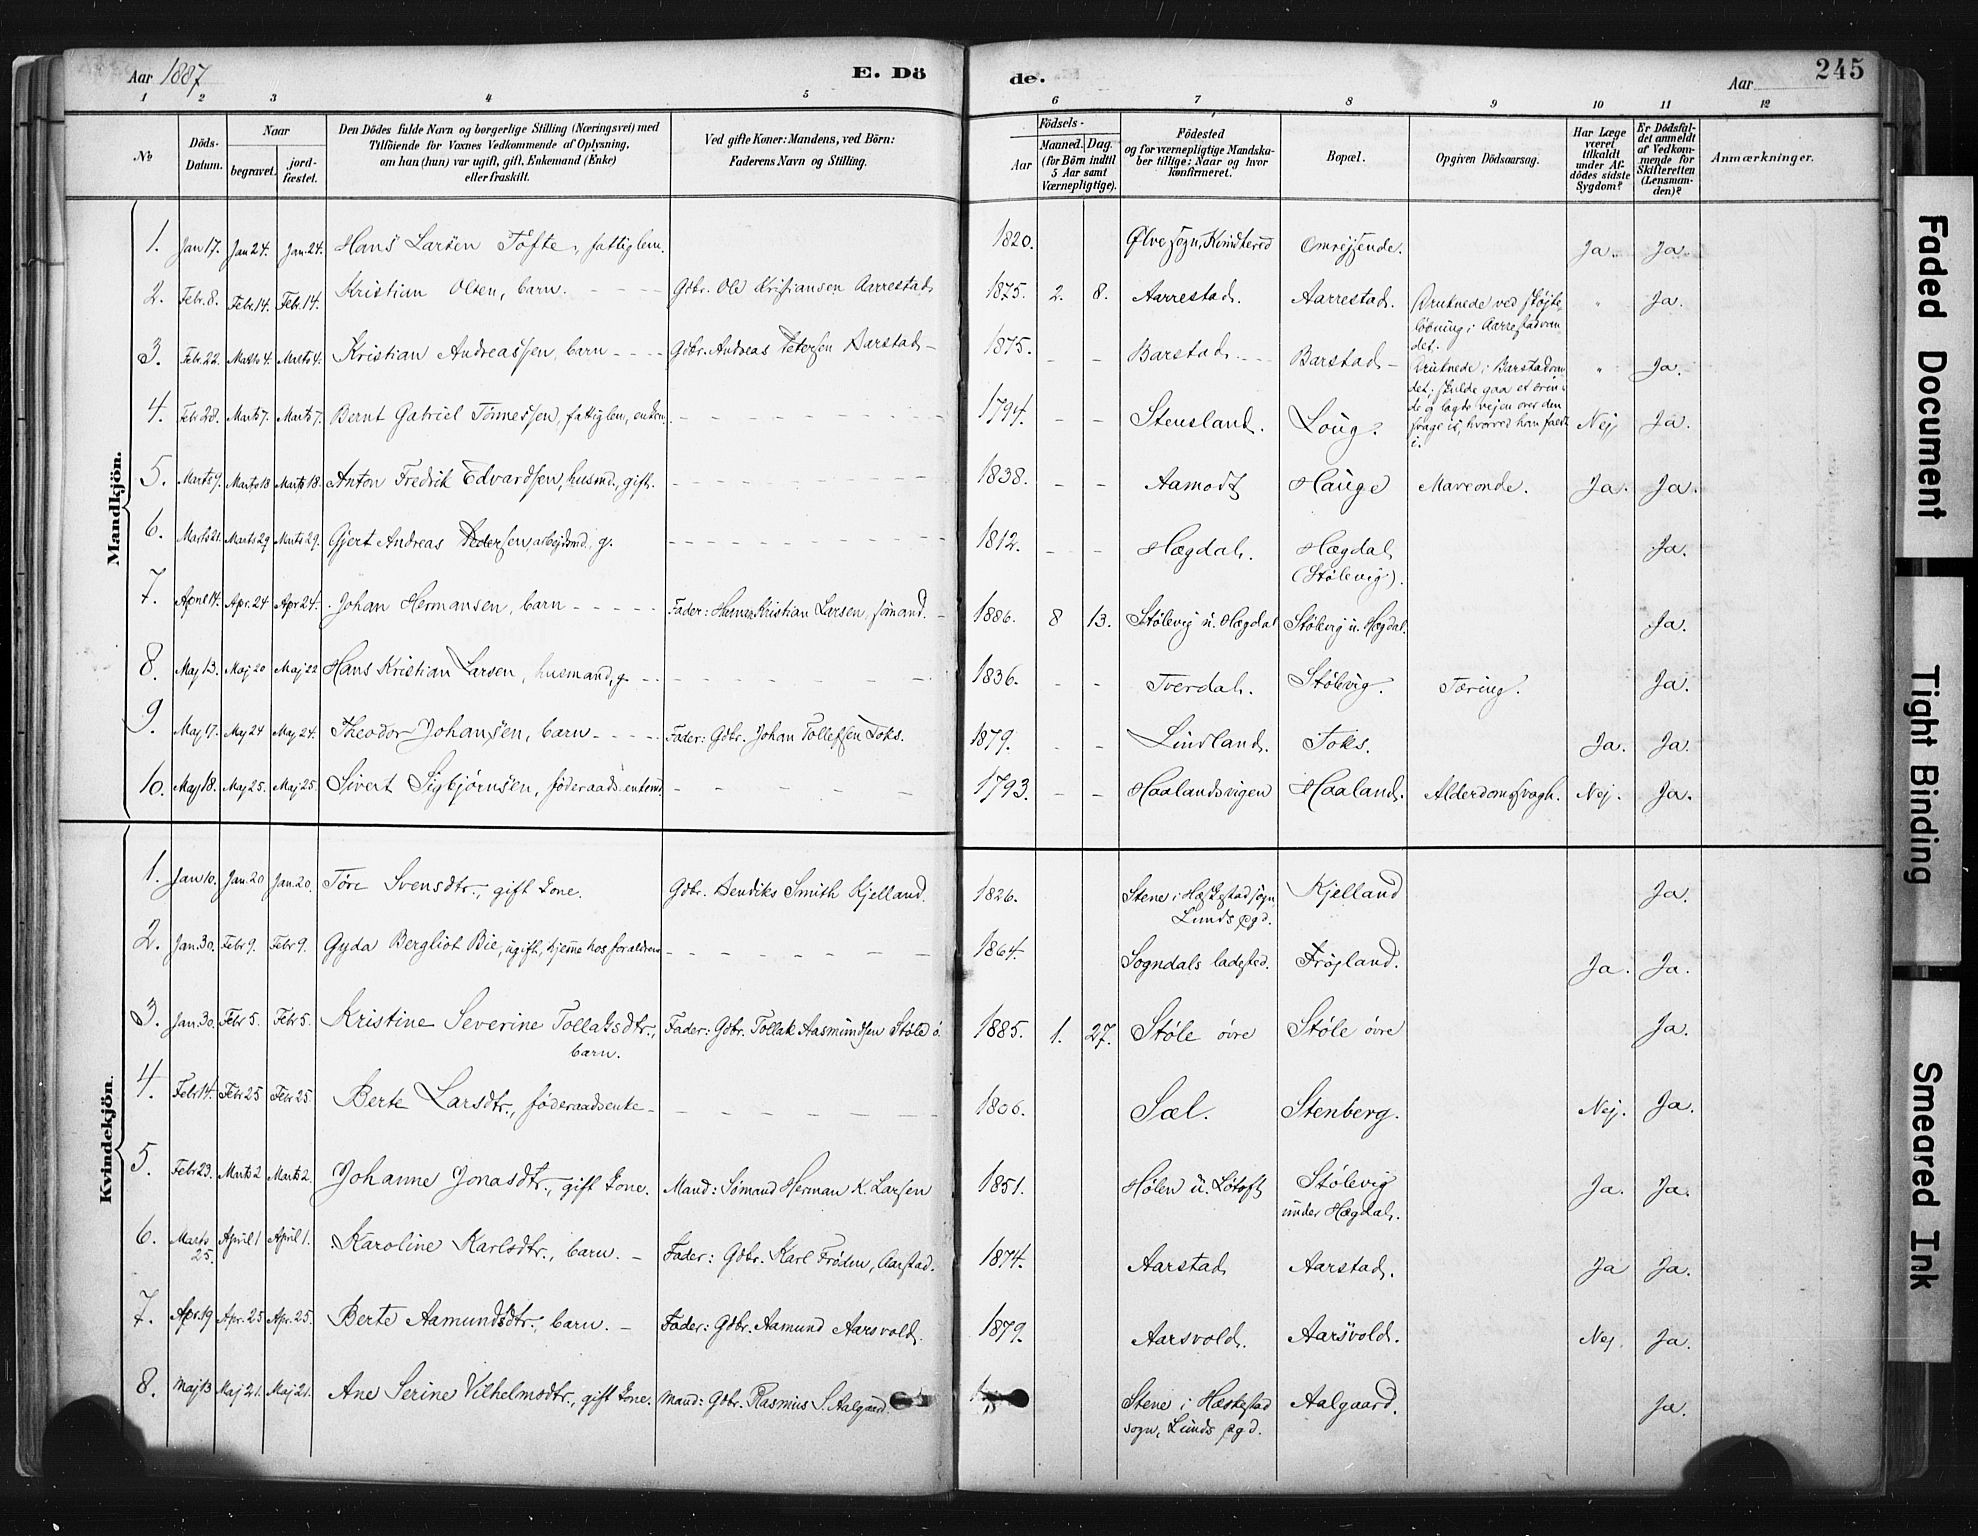 Aar 1887
E. Dö
de.
Aar
245
1 2 3 4 5 6 7 8 9 10 11 12
No
Döds-Datum.
Naar
begravet.
jord-fæstet.
Den Dödes fulde Navn og borgerlige Stilling (Næringsvei) med
Tilföiende for Voxnes Vedkommende af Oplysning,
om han (hun) var ugift, gift, Enkemand (Enke)
eller fraskilt.
Ved gifte Koner: Mandens, ved Börn:
Faderens Navn og Stilling.
Födsels-
Aar
Maaned. Dag.
(for Börn indtil
5 Aar samt
Værnepligtige).
Födested
og for værnepligtige Mandska-
ber tillige: Naar og hvor
konfirmeret.
Bopæl.
Opgiven Dödsaarsag.
Har Læge
været
tilkaldt
under Af-
dödes sidste
Sygdom?
Er Dödsfal-
det anmeldt
af Vedkom-
mende for
Skifteretten
(Lensman-
den)?
Anmærkninger.
Mandkjön.
1. Jan 17. Jan 24. Jan. 24. Hans Larsen Tofte, fattiglem. 1820. Ølve sogn, Kvindhered Omrejsende. Ja. Ja.
2. Febr. 8. Febr. 14. Febr. 14. Kristian Olsen, barn. Gdbr. Ole Kristiansen Aarrestad 1875. 2. 8. Aarrestad. Aarrestad. Druknede ved skøjte-
løbning i Aarrestadvan-
det. " Ja.
3. Febr. 22. Marts 4. Marts 4. Kristian Andreassen, barn Gdbr. Andreas Petersen Barstad 1875. - - Barstad Barstad Druknede i Barstadvan-
det; skulde gaa et ærin-
de og lagde vejen over den
svage is, hvorved han faldt
i. " Ja.
4. Febr 28. Marts 7. Marts 7. Bernt Gabriel Tønnessen, fattiglem, enkem. 1794. - - Stensland. Loug. Nej Ja.
5. Marts 9. Marts 18 Marts 18. Anton Fredrik Edvardsen, husmd., gift. 1838. - - Aamodt Hauge Maveonde. Ja. Ja.
6. Marts 21. Marts 29 Marts 29. Gjert Andreas Pedersen, arbejdsmd., g. 1812. - - Hægdal. Hægdal
(Stølevig). Ja.
7. April 14. Apr. 24 Apr 24. Johan Hermansen, barn Fader: Herman Kristian Larsen, sømand. 1886. 8 13. Stølevig u. Hægdal Stølevig u. Hægdal. Ja.
8. Maj 13. Maj 20 Maj 22 Hans Kristian Larsen, husmand, g. 1836. - - Tverdal. Stølevig. Tæring. Ja.
9. Maj 17. Maj 24 Maj 24. Theodor Johansen, barn Fader: Gdbr. Johan Tollefsen Toks. 1879. - - Lindland. Toks. Ja. Ja.
10. Maj 18. Maj 25. Maj 25. Sivert Sigbjørnsen, føderaads enkemd. 1793. - - Haalandsvigen Haaland. Alderdomssvagh. Nej. Ja.
Kvindekjön.
1. Jan 10. Jan. 20 Jan. 20. Tøre Svensdtr., gift kone. Gdbr. Bendiks Smith Kjelland. 1826. Stene i Hæskestad sogn
Lunds pgd. Kjelland Ja.
2. Jan. 30. Febr 9. Febr 9. Gyda Bergliot Bie, ugift, hjemme hos forældrene 1864. Sogndals ladested. Frøjland. Ja. Ja.
3. Jan. 30. Febr 5. Febr 5. Kristine Severine Tollaksdtr.,
barn. Fader: Gdbr. Tollak Aasmundsen Støle ø. 1885. 1. 27. Støle øvre Støle øvre Ja.
4. Febr 14. Febr 25 Febr 25. Berte Larsdtr., føderaadsenke 1806. Sæl. Stenberg. Nej. Ja.
5. Febr 23. Marts 2 Marts 2. Johanne Jonasdtr., gift kone. Mand: Sømand Herman K. Larsen 1851. Hølen u. Løtoft Stølevig
under Hægdal. Ja. Ja.
6. Marts
25. April 1 April 1. Karoline Karlsdtr., barn. Fader: Gdbr. Karl Frøden, Aarstad. 1874. Aarstad Aarstad. Ja Ja.
7. Apr. 19 Apr. 25 Apr. 25. Berte Aamundsdtr., barn. Fader: Gdbr. Aamund Aarsvold. 1879. Aarsvold. Aarsvold. Nej. Ja.
8. Maj 13 Maj 21. Maj 21. Ane Serine Vilhelmsdtr., gift kone. Mand: Gdbr. Rasmus S. Aalgaard. Stene i Hæskestad
sogn, Lunds pgd. Aalgaard. Ja.
Faded Document
Tight Binding
Smeared Ink